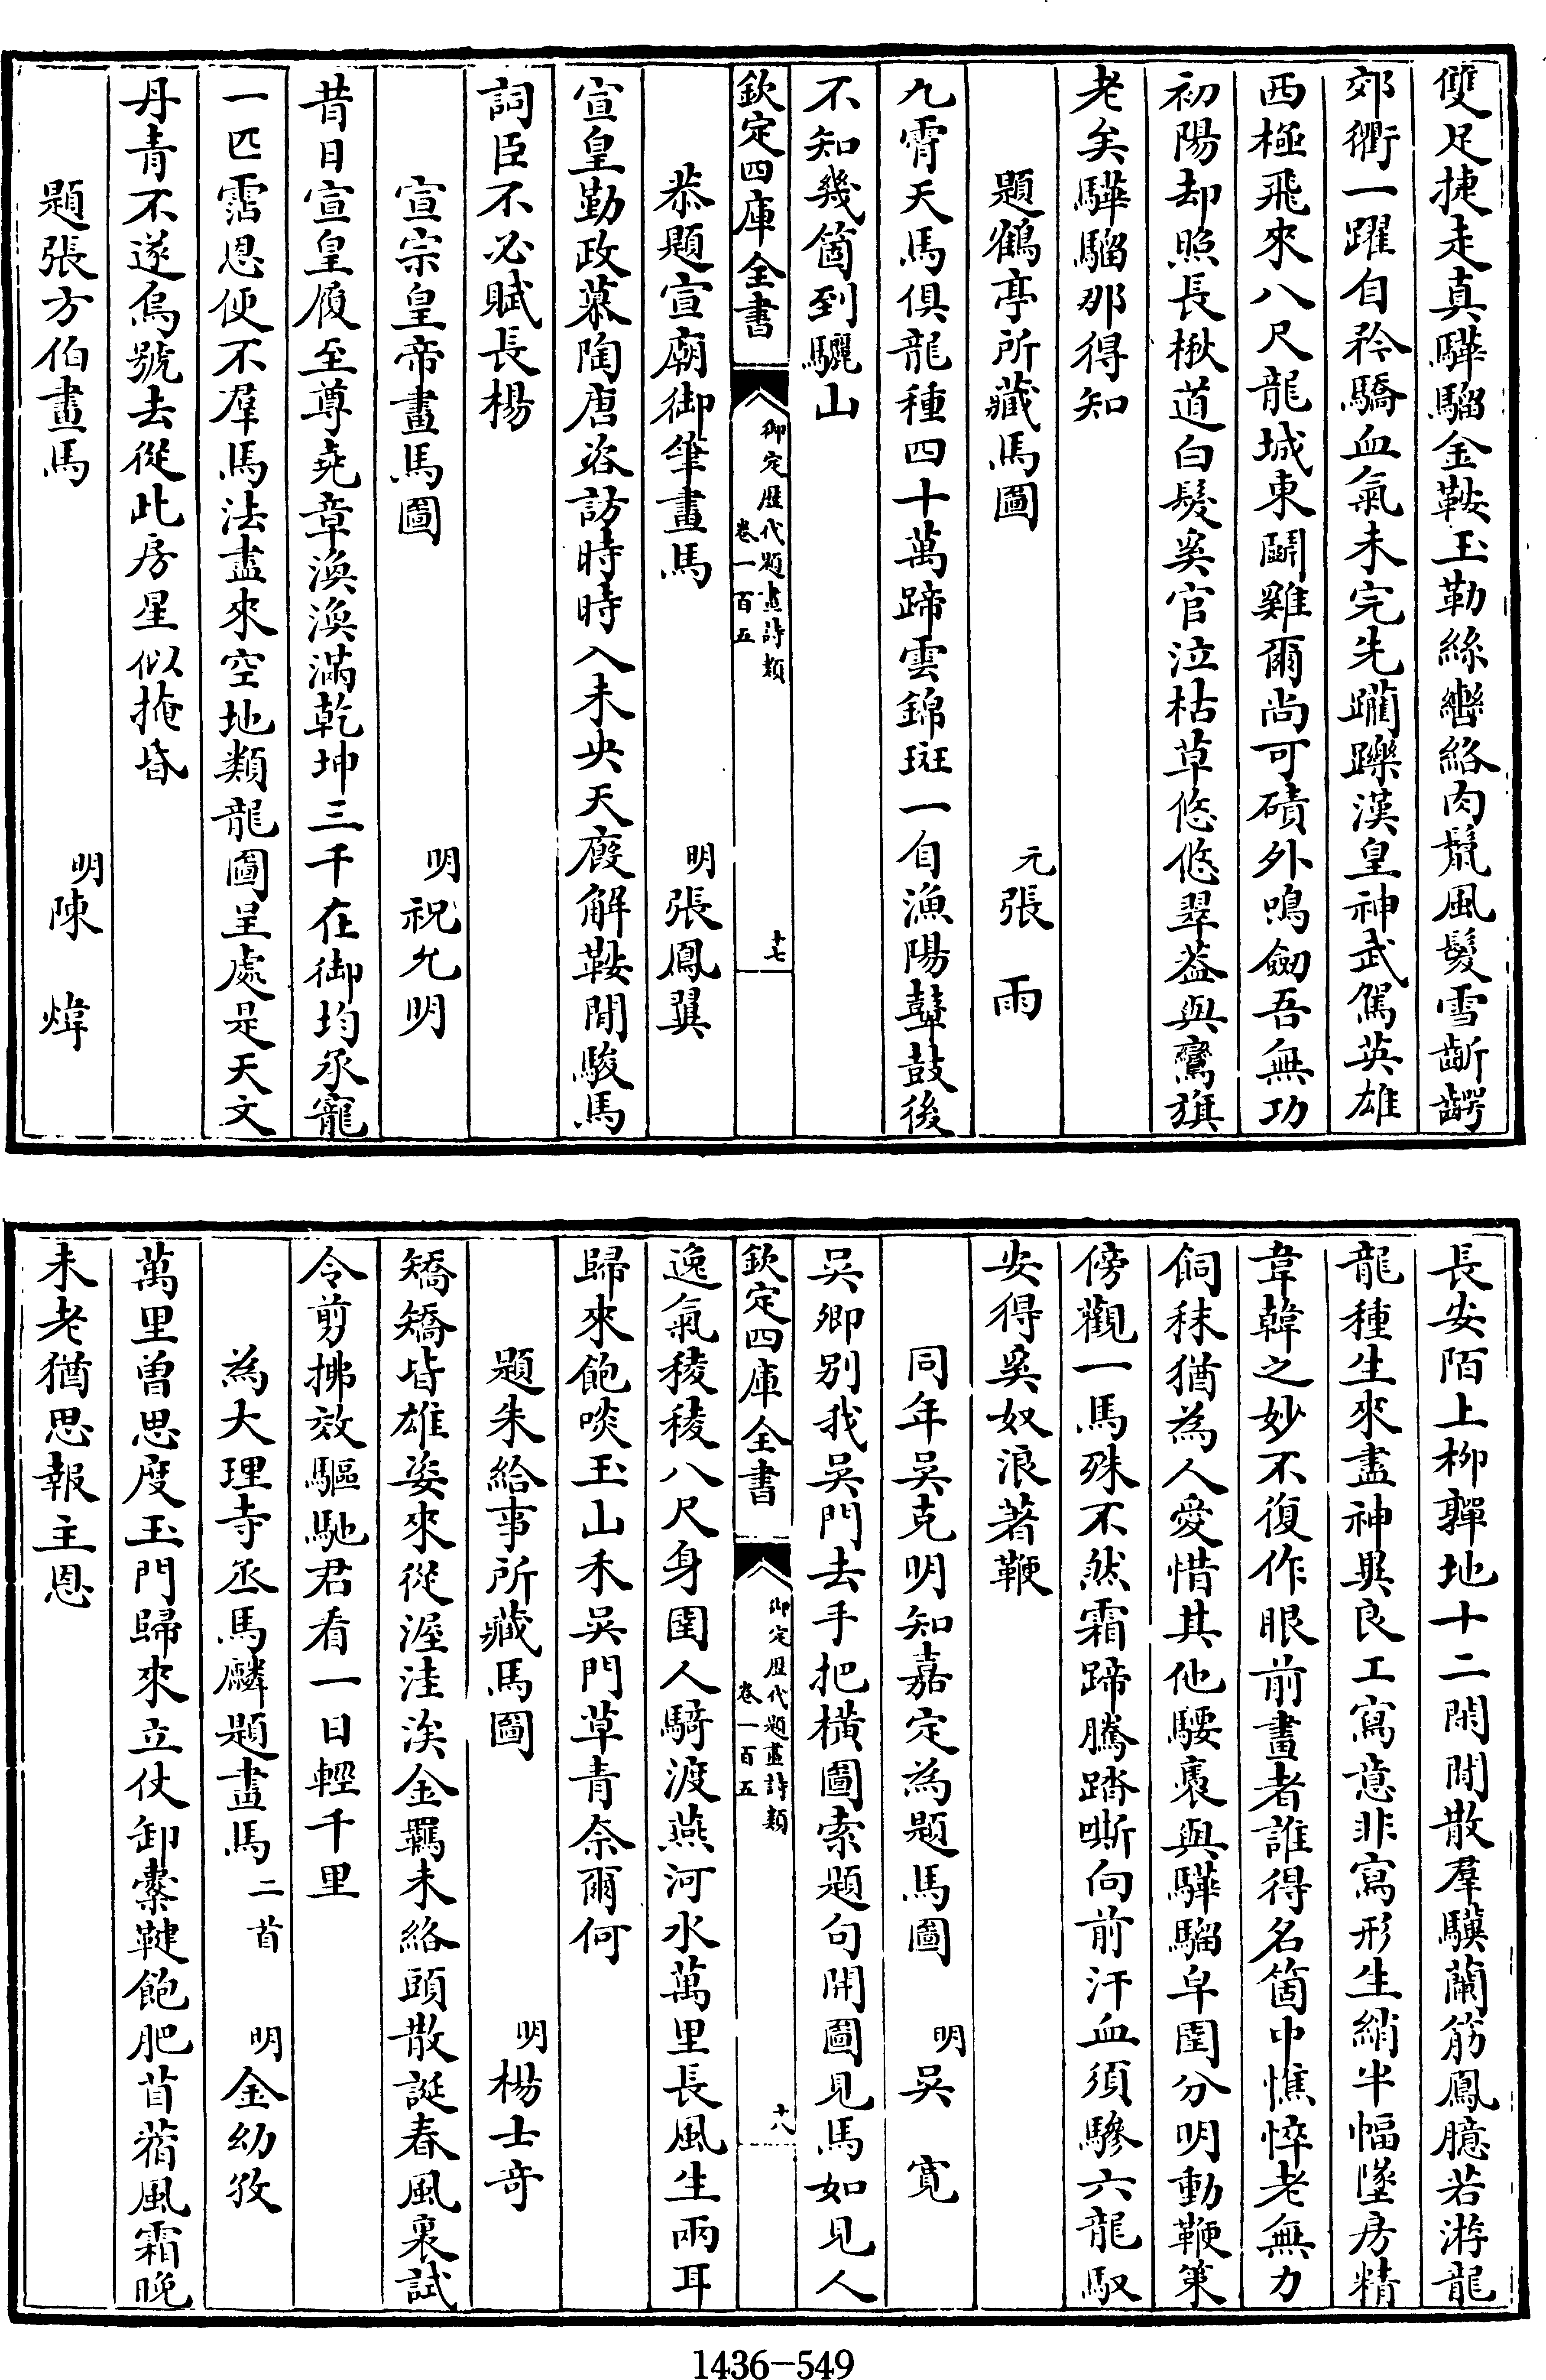 雙足捷走真驊騮金鞍玉勒絲轡絡肉鬃風鬉雪齗齶
郊衢一躍自矜驕血氣未完先躪躒漢皇神武駕英雄
西極飛來八尺龍城東鬭雞爾尚可磧外鳴劒吾無功
初陽却照長楸道白髮奚官泣枯草悠悠翠葢與鸞旗
老矣驊騮那得知
題鶴亭所藏馬圖　元張雨
九霄天馬俱龍種四十萬蹄雲錦斑一自漁陽鼙鼓後
不知幾箇到驪山
欽定四庫全書　御定歴代題畫詩類　卷一百五　十七
恭題宣廟御筆畫馬　明張鳳翼
宣皇勤政慕陶唐咨訪時時入未央天廐解鞍閒駿馬
詞臣不必賦長楊
宣宗皇帝畫馬圖　明祝允明
昔日宣皇履至尊堯章渙渙滿乾坤三千在御均承寵
一匹霑恩便不羣馬法盡來空地類龍圖呈處是天文
丹青不遂烏號去從此房星似掩昏
題張方伯畫馬　明陳煒
長安陌上柳嚲地十二閑閒散羣驥蘭筋鳳臆若游龍
龍種生來盡神異良工寫意非寫形生綃半幅墜房精
韋韓之妙不復作眼前畫者誰得名箇中憔悴老無力
飼秣猶為人愛惜其他騕褭與驊騮皁圉分明動鞭策
傍觀一馬殊不然霜蹄騰踏嘶向前汗血須驂六龍馭
安得奚奴浪著鞭
同年吳克明知嘉定為題馬圖　明吳寬
吳卿别我吳門去手把橫圖索題句開圖見馬如見人
欽定四庫全書　御定歴代題畫詩類　卷一百五　十八
逸氣稜稜八尺身圉人騎渡燕河水萬里長風生兩耳
歸來飽啖玉山禾吳門草青奈爾何
題朱給事所藏馬圖　明楊士奇
矯矯皆雄姿來從渥洼涘金羈未絡頭散誕春風裏試
令剪拂效驅馳君看一日輕千里
為大理寺丞馬麟題畫馬二首　明金幼孜
萬里曽思度玉門歸來立仗卸櫜鞬飽肥苜蓿風霜晚
未老猶思報主恩
1436-549